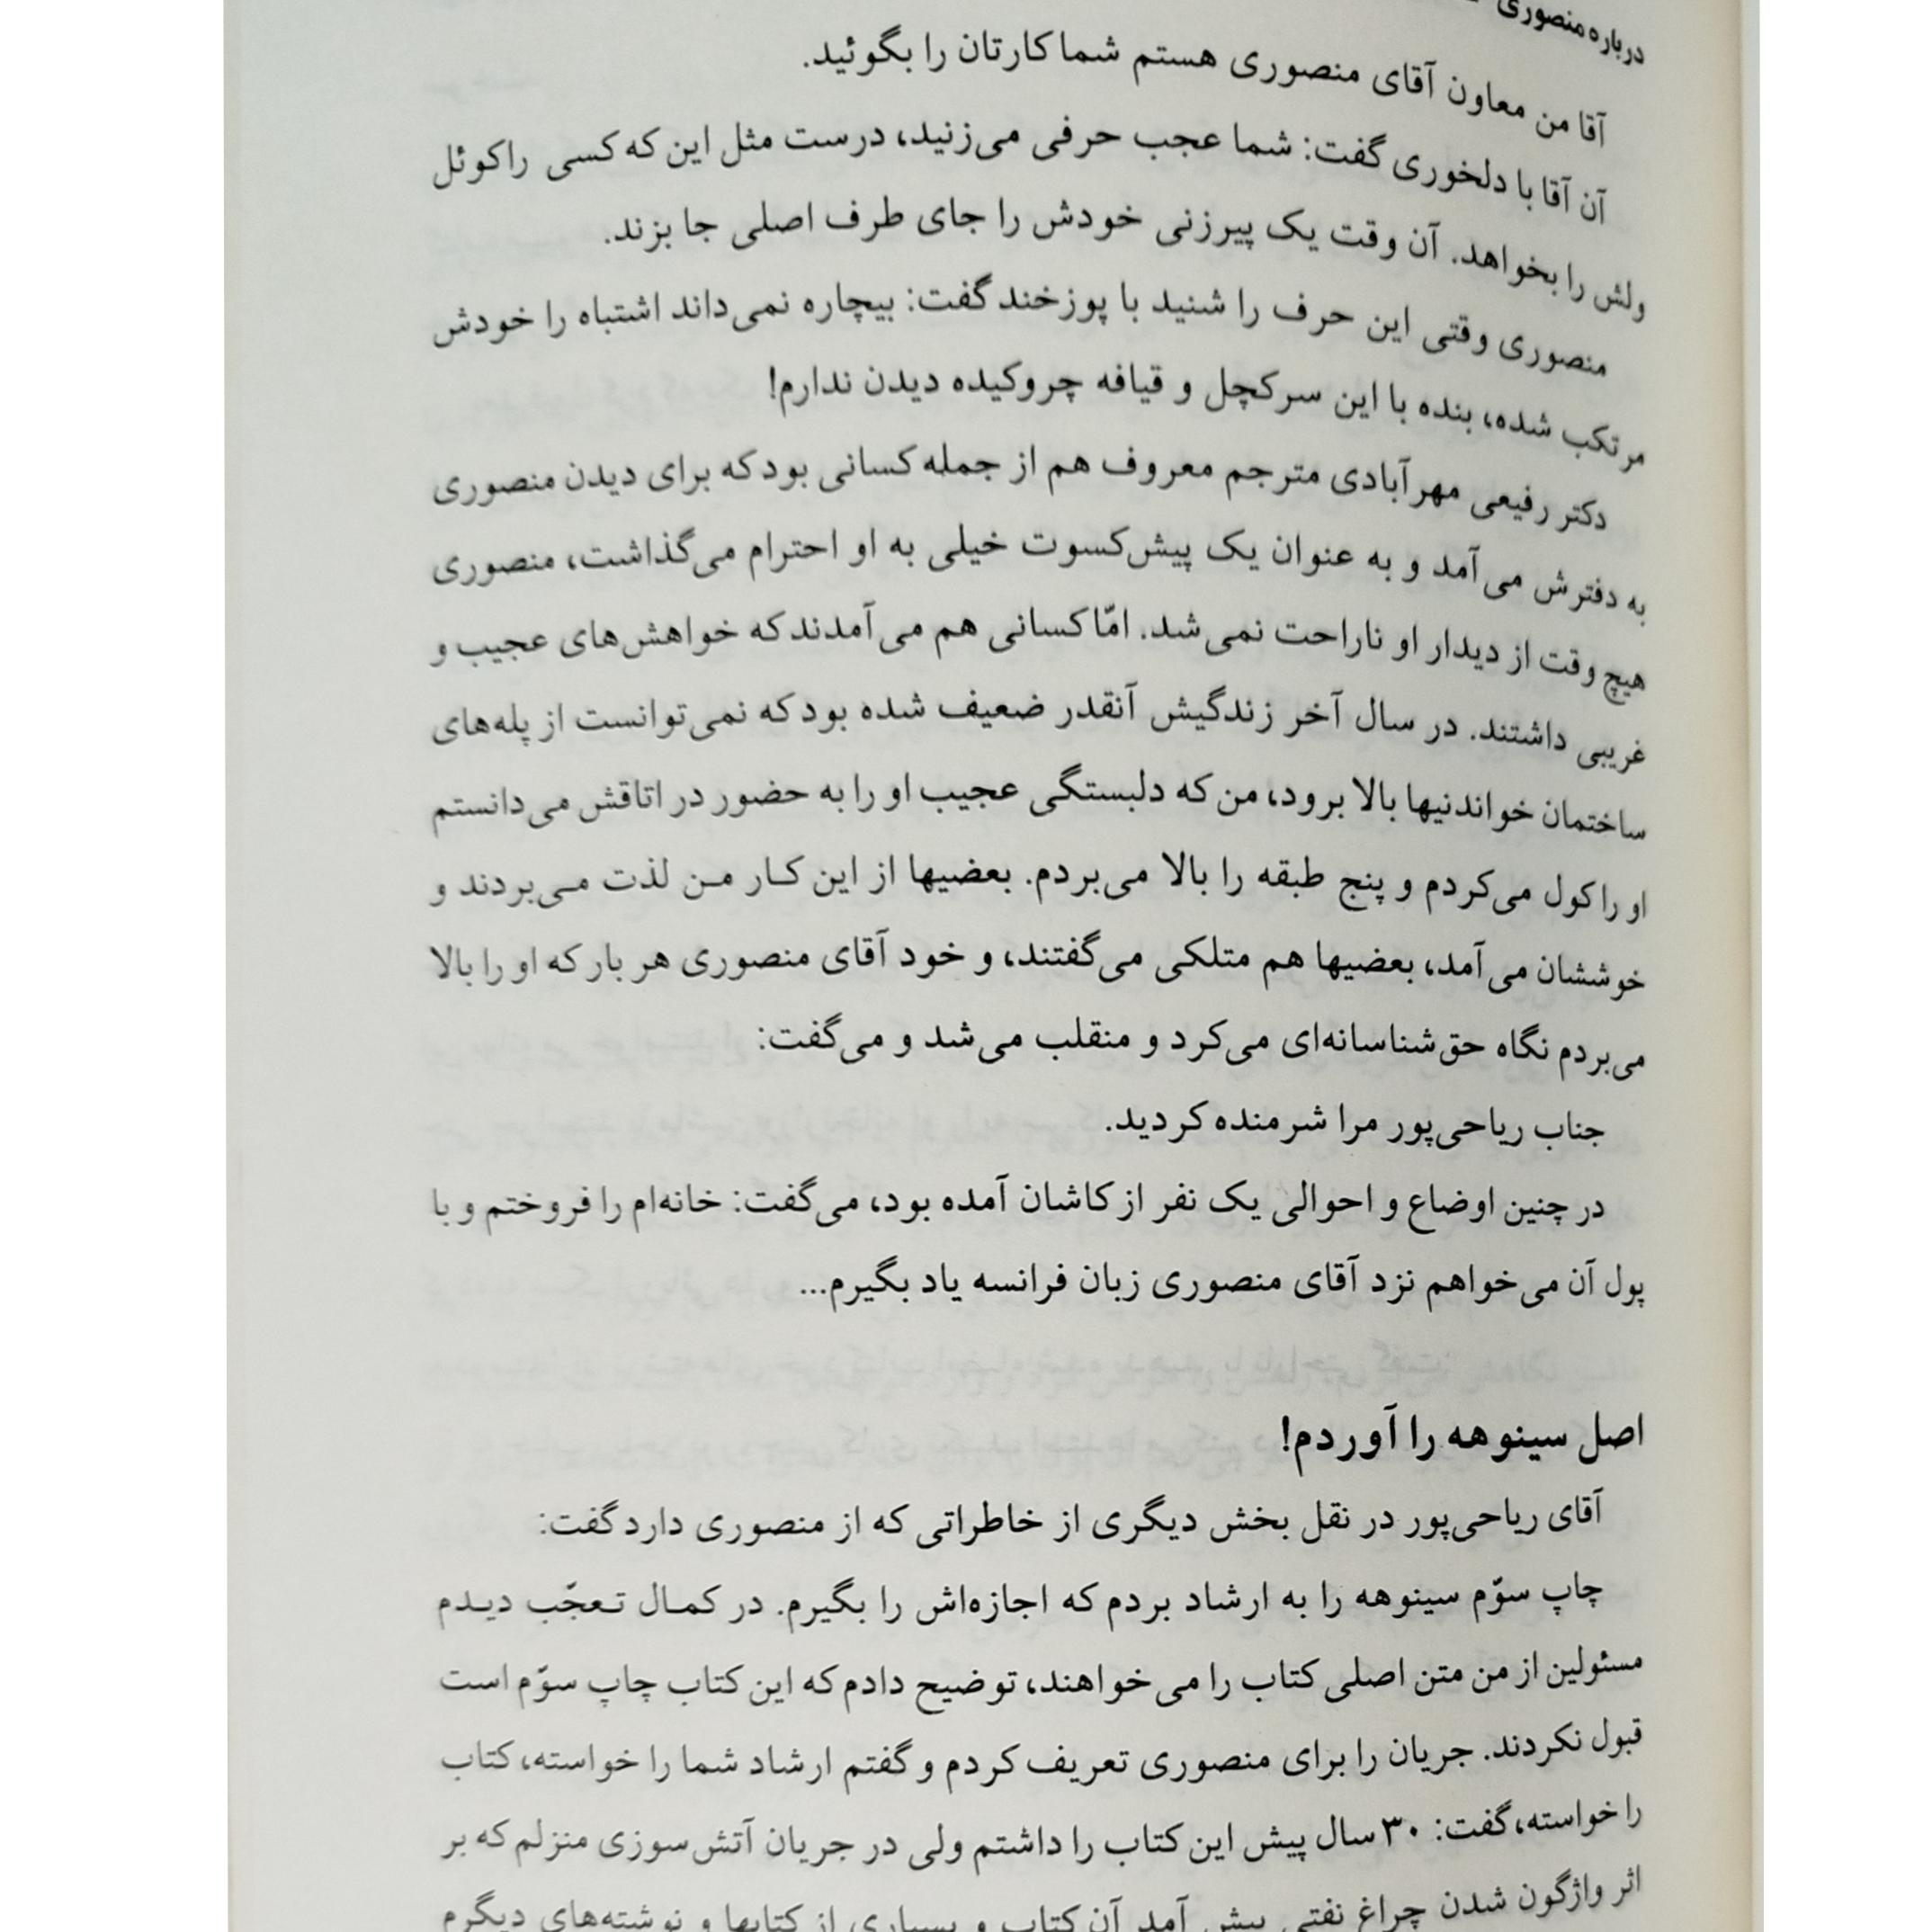 درباره منصوری
آقا من معاون آقای منصوری هستم شما کارتان را بگوئید.
آن آقا با دلخوری گفت: شما عجب حرفی می‌زنید، درست مثل این که کسی راکوئل
ولش را بخواهد. آن وقت یک پیرزنی خودش را جای طرف اصلی جا بزند.
منصوری وقتی این حرف را شنید با پوزخند گفت: بیچاره نمی‌داند اشتباه را خودش
مرتکب شده، بنده با این سر کچل و قیافه چروکیده دیدن ندارم!
دکتر رفیعی مهرآبادی مترجم معروف هم از جمله کسانی بود که برای دیدن منصوری
به دفترش می‌آمد و به عنوان یک پیش‌کسوت خیلی به او احترام می‌گذاشت، منصوری
هیچ وقت از دیدار او ناراحت نمی‌شد. امّا کسانی هم می‌آمدند که خواهش‌های عجیب و
غریبی داشتند. در سال آخر زندگیش آنقدر ضعیف شده بود که نمی‌توانست از پله‌های
ساختمان خواندنیها بالا برود، من که دلبستگی عجیب او را به حضور در اتاقش می‌دانستم
او را کول می‌کردم و پنج طبقه را بالا می‌بردم. بعضیها از این کـار مـن لذت مـی‌بردند و
خوششان می‌آمد، بعضیها هم متلکی می‌گفتند، و خود آقای منصوری هر بار که او را بالا
می‌بردم نگاه حق‌شناسانه‌ای می‌کرد و منقلب می‌شد و می‌گفت:
جناب ریاحی‌پور مرا شرمنده کردید.
در چنین اوضاع و احوالی یک نفر از کاشان آمده بود، می‌گفت: خانه‌ام را فروختم و با
پول آن می‌خواهم نزد آقای منصوری زبان فرانسه یاد بگیرم...
اصل سینوهه را آوردم!
آقای ریاحی‌پور در نقل بخش دیگری از خاطراتی که از منصوری دارد گفت:
چاپ سوّم سینوهه را به ارشاد بردم که اجازه‌اش را بگیرم. در کمـال تـعجّب دیـدم
مسئولین از من متن اصلی کتاب را می‌خواهند، توضیح دادم که این کتاب چاپ سوّم است
قبول نکردند. جریان را برای منصوری تعریف کردم و گفتم ارشاد شما را خواسته، کتاب
را خواسته، گفت: ۳۰ سال پیش این کتاب را داشتم ولی در جریان آتش‌سوزی منزلم که بر
اثر واژگون شدن چراغ نفتی پیش آمد آن کتاب و بسیاری از کتابها و نوشته‌های دیگرم